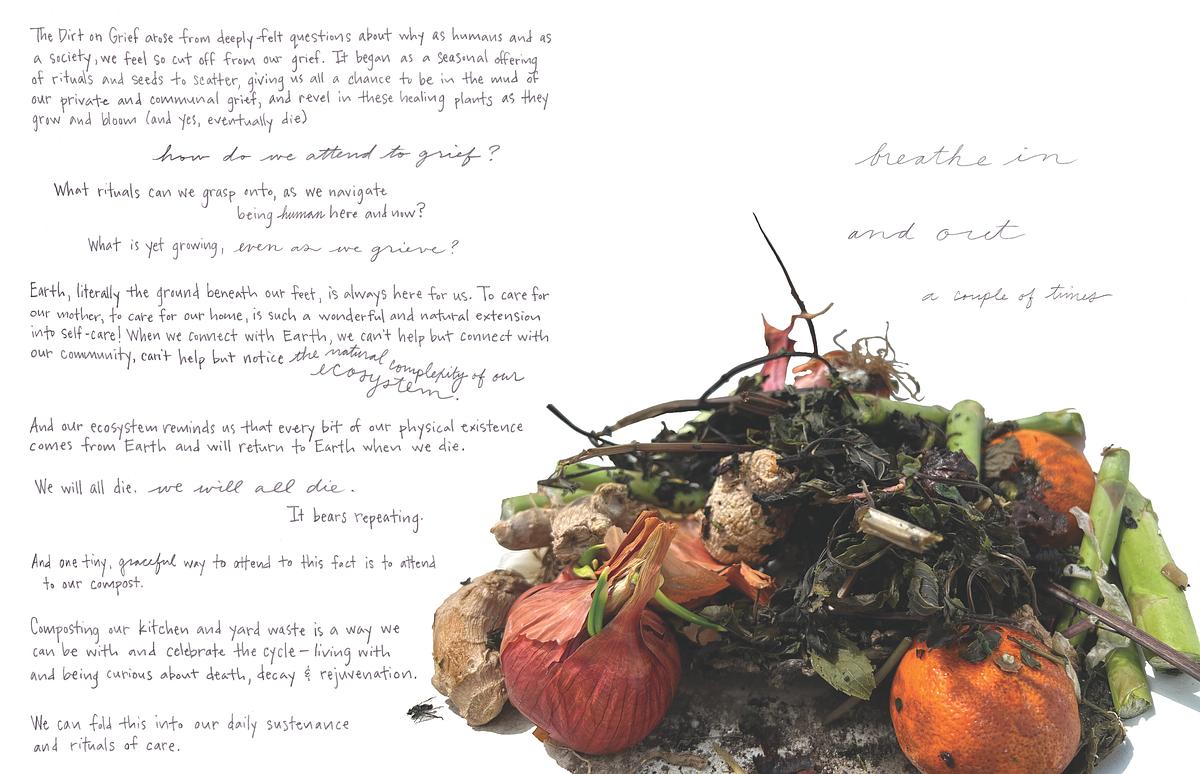 The Dirt on Grief arose from deeply-felt questions about why as humans and as
a society, we feel so cut off from our grief. It began as a seasonal offering
of rituals and seeds to scatter, giving us all a chance to be in the mud of
our private and communal grief, and revel in these healing plants as they
grow and bloom (and yes, eventually die)
how do we attend to grief?
What rituals can we grasp onto, as we navigate
being human here and now?
What is yet growing, even as we grieve?
Earth, literally the ground beneath our feet, is always here for us. To care for
our mother, to care for our home, is such a wonderful and natural extension
into self-care! When we connect with Earth, we can't help but connect with
our community, can't help but notice the natural complexity of our
ecosystem.
And our ecosystem reminds us that every bit of our physical existence
comes from Earth and will return to Earth when we die.
We will all die. we will all die.
It bears repeating.
And one tiny, graceful way to attend to this fact is to attend
to our compost.
Composting our kitchen and yard waste is a way we
can be with and celebrate the cycle – living with
and being curious about death, decay & rejuvenation.
We can fold this into our daily sustenance
and rituals of care.
breathe in
and out
a couple of times